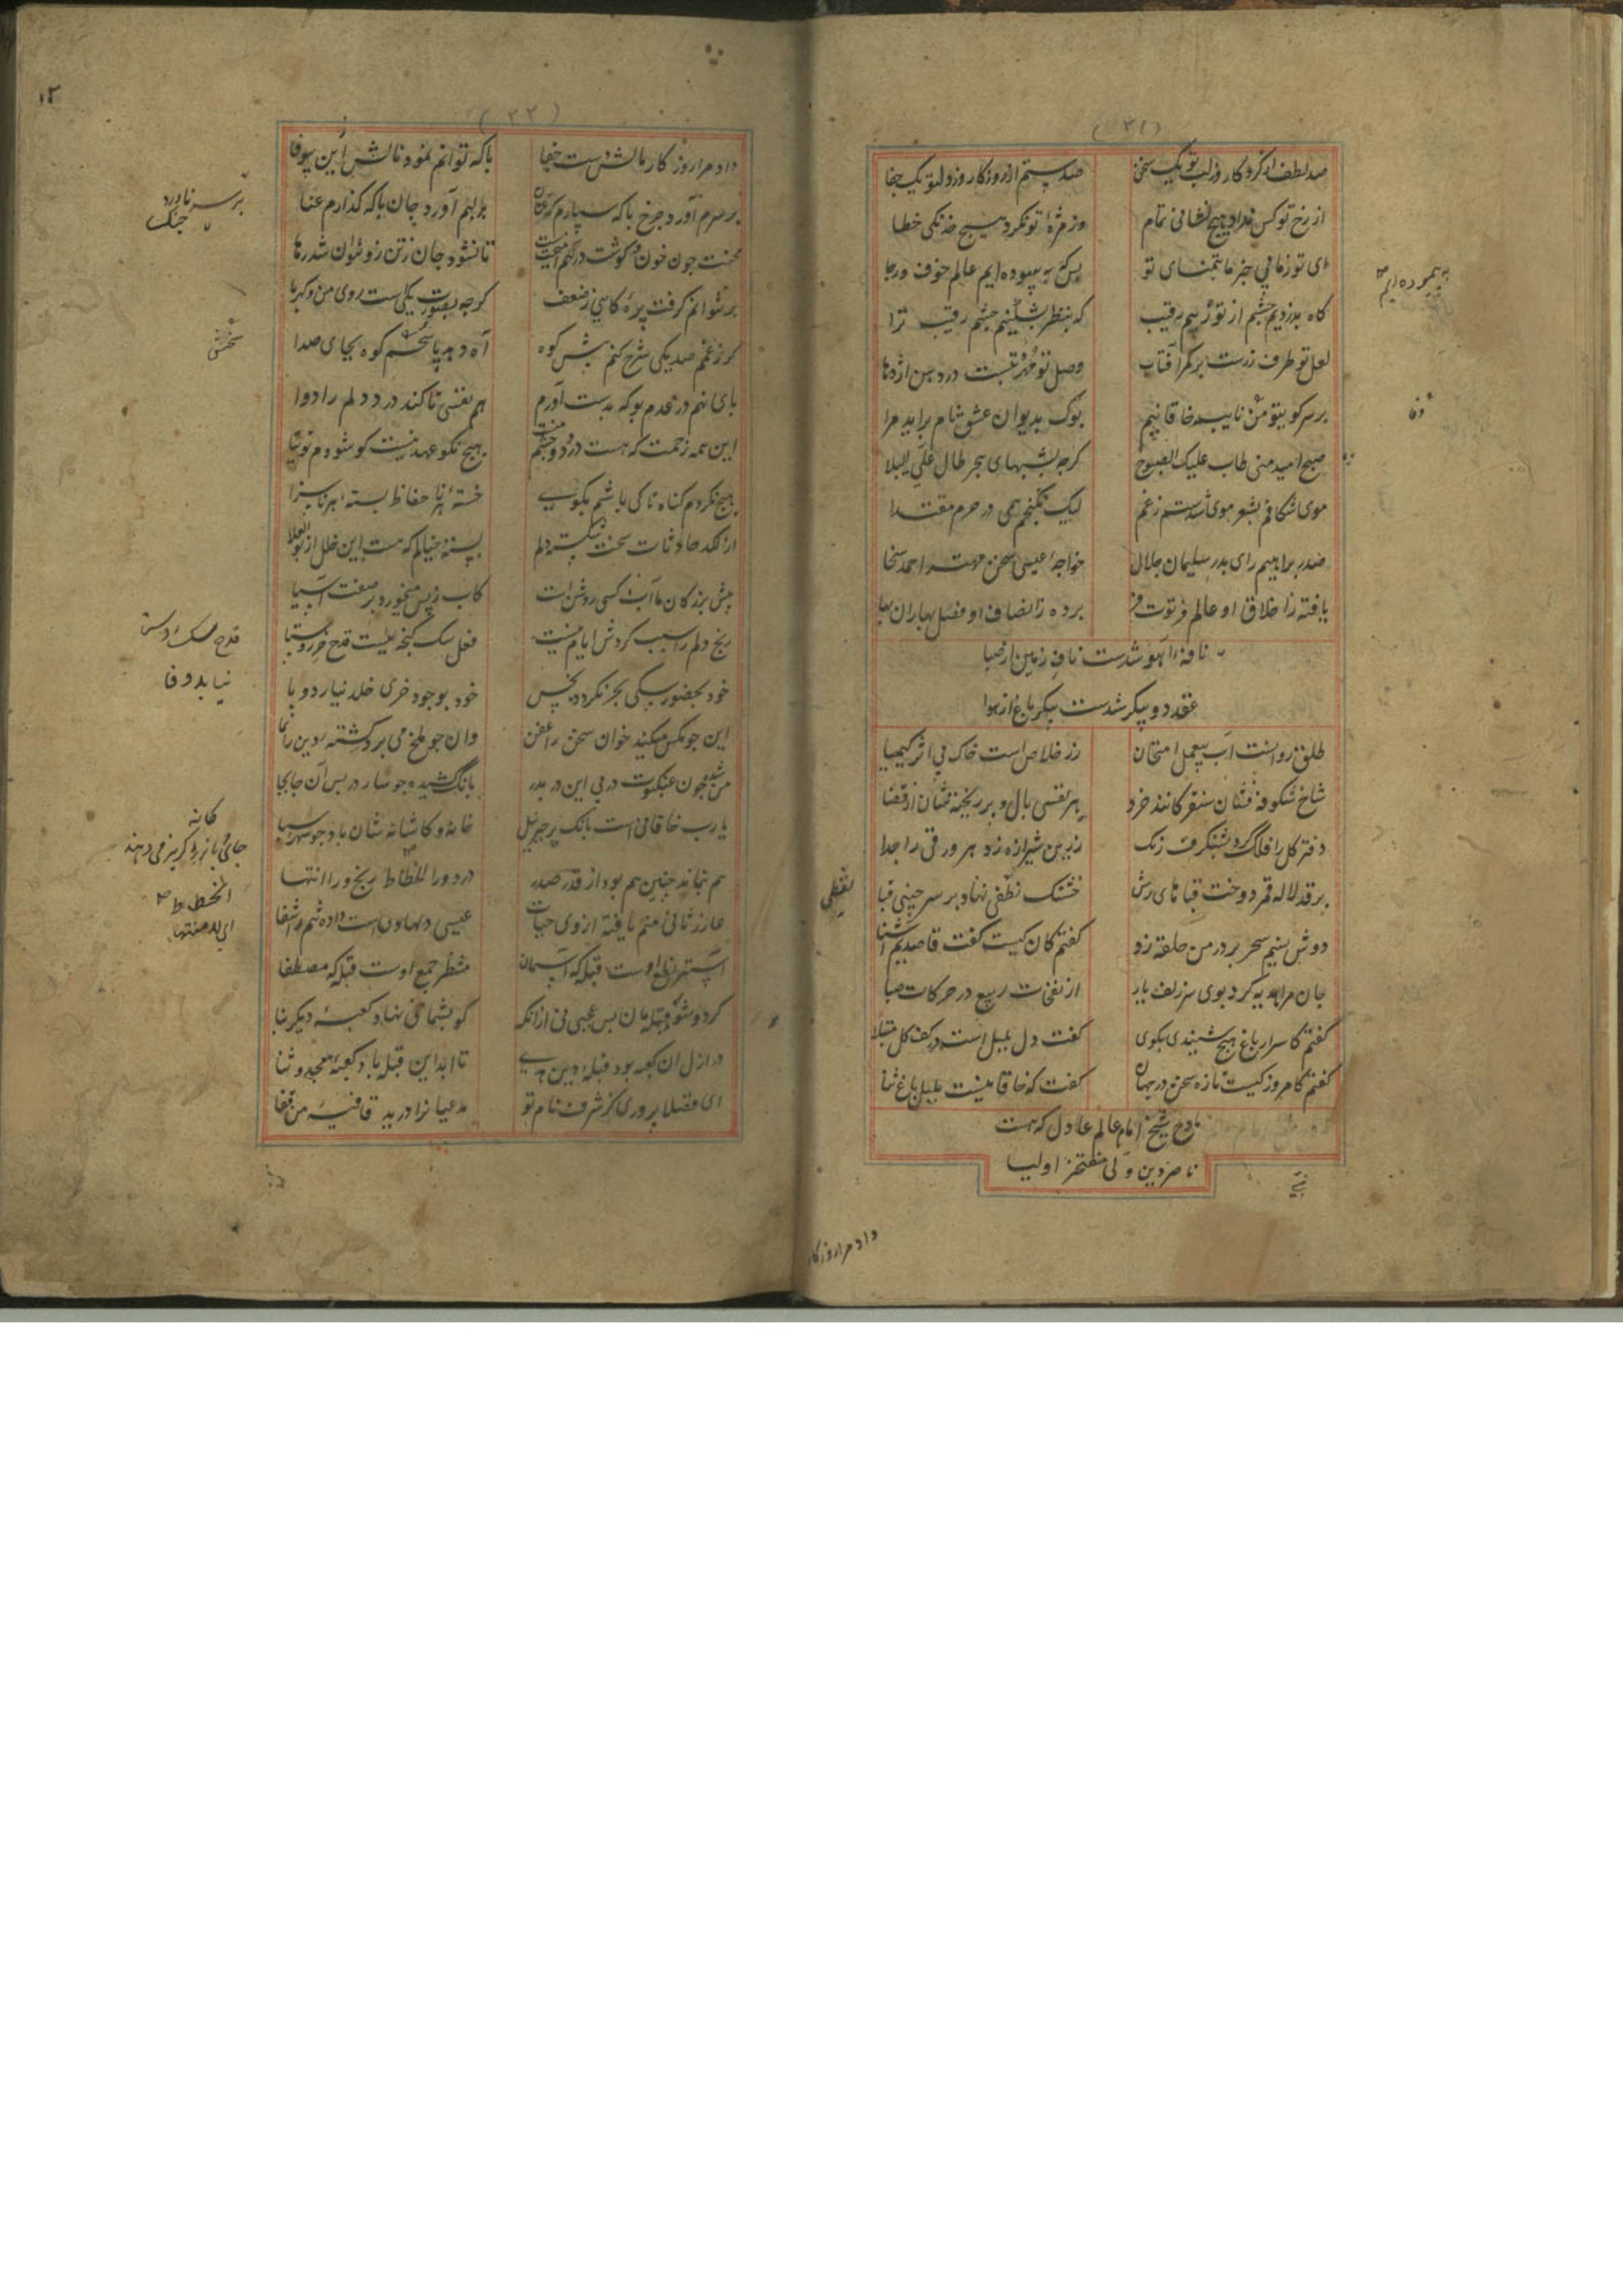 (۲۱)
صد لطف از کردگار وز لب تو یک سخن
صد ستم از روزگار وز دل تو یک جفا
از رخ تو کس نداد هیچ نشانی تمام
وز مژهٔ تو نکرد هیچ خدنگی خطا
ای تو ز ما بی خبر ما بتمنای تو
بس که بپیموده ایم عالم خوف و رجا
گاه بدزدیم چشم از تو ز بیم رقیب
که بنظر بشکنیم چشم رقیب ترا
لعل تو طرف زرست بر کمر آفتاب
وصل تو مهر تبست در دهن اژدها
بر سر کوی تو من نایب خاقانیم
بوک بدیوان عشق نام برآید مرا
صبح امید منی طاب علیک الصبوح
کرچه بشبهای هجر طال علی البلا
موی شکافم بشعر موی شدستم ز غم
لیک نکنجم همی در حرم مقتدا
صدر براهیم رای بدر سلیمان جلال
خواجهٔ عیسی سخن مهتر احمد سخا
یافته ز اخلاق او عالم فرتوت فر
برده ز انصاف او فصل بهاران بها
نافهٔ آهو شدست ناف زمین از صبا
عقد دو پیکر شدست پیکر باغ از هوا
طلق روانست آب بیعمل امتحان
زر خلاص است خاک بی اثر کیمیا
شاخ شکوفه فشان سنقر کانند خرد
هر نفسی بال و پر ریخته شان از قضا
دفتر کل را فلک کرد بشنکرف رنک
زرین شیرازه زد هر ورقی را جدا
بر قد لاله قمر دوخت قباهای رش
خشتک نطفی نهاد بر سر چینی قبا
دوش نسیم سحر بر در من حلقه زد
کفتم کان کیست کفت قاصدیم آشنا
جان مرا هدیه کرد بوی سر زلف یار
از نفحات ربیع در حرکات صبا
کفتم کاسرار باغ هیچ شنیدی بکوی
کفت دل بلبل است در کف کل مبتلا
کفتم کامروز کیست تازه سخن در جهان
کفت که خاقانیست بلبل باغ ثنا
مادح شیخ امام عالم عادل که هست
ناصر دین ولی مفتخر اولیا
بپیموده ایم
نفطی
داد مرا روزکار
(۲۲)
۱۲
داد مرا روزکار مالش دست جفا
با که توانم نمود نالش این بیوفا
بر سرم آورد چرخ با که سپارم عنان
بر لبم آورد جان با که کذارم عنا
محنت چون خون و کوشت در تنم آمیخت
تا نشود جان ز تن زو نتوان شد رها
بر نتوانم کرفت پرهٔ کاهی ز ضعف
کرچه بصورت یکیست روی من و کهربا
کر ز غمم صد یکی شرح کنم پیش کوه
آه دهد پاسخم کوه بجای صدا
پای نهم در عدم بوکه بدست آورم
هم نفسی تا کند درد دلم را دوا
این همه زحمت که هست درد دو چشم منست
هیچ نکو عهد نیست کو شودم توتیا
هیچ نکردم کناه تا کی باشم بکوی
خستهٔ هر ناحفاظ بستهٔ هر ناسزا
از لکد حادثات سخت شکسته دلم
بسته خیالم که هست این خلل از بوالعلا
پیش بزرکان ما آب کسی روشن است
کاب ز پس میخورد بر صفت آسیا
رنج دلم را سبب کردش ایام نیست
فعل سک کنجه نیست قدح خر روستا
خود بحضور سکی بحر نکردد نجس
خود بوجود خری خلد نیارد وبا
این چو مکس میکند خوان سخن را عفن
وان چو ملخ می برد کشتهٔ دین را نما
من شده چون عنکبوت در پی این در بدر
بانک کشیده چو سار در پس آن جابجا
یارب خاقانی است بانک پر جبرئیل
خانه و کاشانه شان باد چو شهر سبا
هم بنماند چنین هم بود از قدر صدر
درد ورا انحطاط رنج ورا انتها
عازر ثانی منم یافته از وی حیات
عیسی دلها وی است داده تنم را شفا
مشطر جمع اوست قبله که مصطفا
کرد و شو قبله مان بس عجبی نی ازانکه
کو بشماخی نهاد کعبهٔ دیکر بنا
در ازل آن کعبه بود قبلهٔ دین هدی
تا ابد این قبله باد کعبهٔ مجد و ثنا
ای فضلا پروری کز شرف نام تو
مدعیانرا درید قافیهٔ من قفا
سخنش
کانه
الخطط
ای المنتها